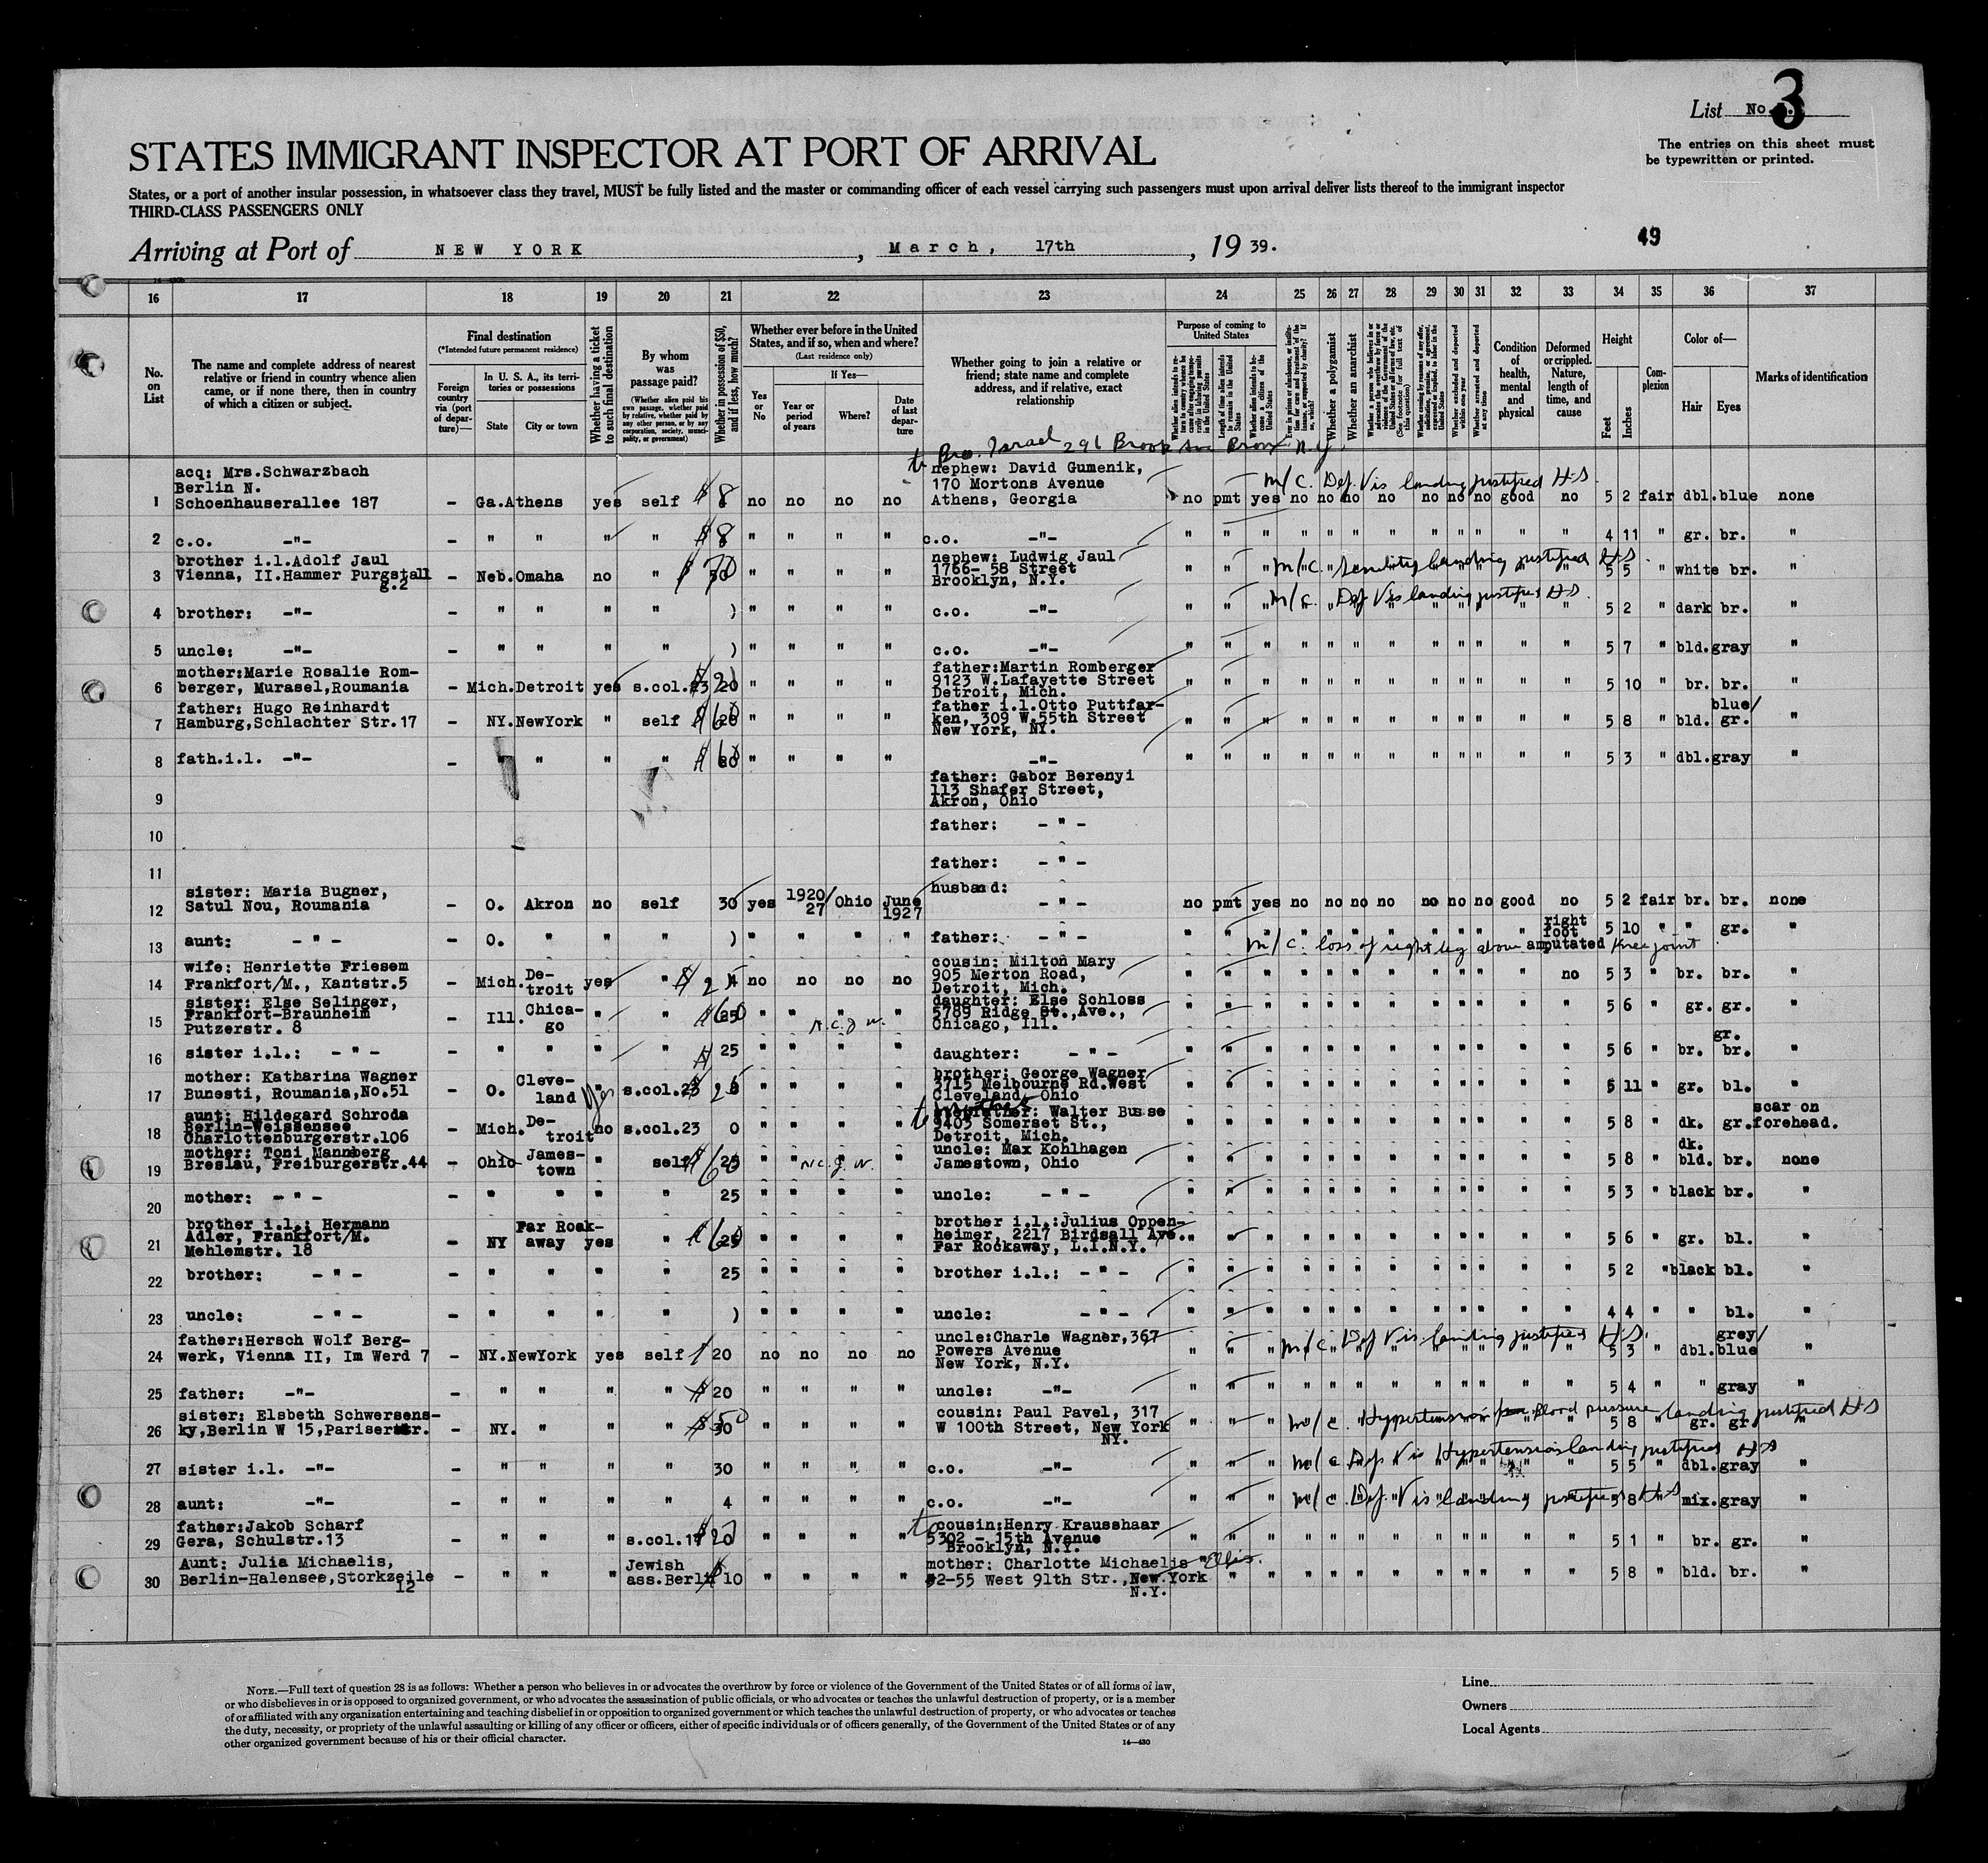 List No. 3
The entries on this sheet must
be typewritten or printed.
STATES IMMIGRANT INSPECTOR AT PORT OF ARRIVAL
States, or a port of another insular possession, in whatsoever class they travel, MUST be fully listed and the master or commanding officer of each vessel carrying such passengers must upon arrival deliver lists thereof to the immigrant inspector
THIRD-CLASS PASSENGERS ONLY
Arriving at Port of NEW YORK, March, 17th, 19 39.
49
16 17 18 19 20 21 22 23 24 25 26 27 28 29 30 31 32 33 34 35 36 37
No. on List
The name and complete address of nearest relative or friend in country whence alien came, or if none there, then in country of which a citizen or subject.
Final destination
(*Intended future permanent residence)
Foreign country via (port of departure)—
In U. S. A., its territories or possessions
State
City or town
Whether having a ticket to such final destination
By whom was passage paid?
(Whether alien paid his own passage, whether paid by relative, whether paid by any other person, or by any corporation, society, municipality, or government)
Whether in possession of $50, and if less, how much?
Whether ever before in the United States, and if so, when and where?
(Last residence only)
Yes or No
If Yes—
Year or period of years
Where?
Date of last departure
Whether going to join a relative or friend; state name and complete address, and if relative, exact relationship
Purpose of coming to United States
Whether a polygamist
Whether an anarchist
Condition of health, mental and physical
Deformed or crippled. Nature, length of time, and cause
Height
Feet
Inches
Complexion
Color of—
Hair
Eyes
Marks of identification
to Bro. Israel 291 Brook Ave Bronx N.Y.
acq: Mrs.Schwarzbach nephew: David Gumenik,
Berlin N. 170 Mortons Avenue m/c. Def. Vis landing justified HS
1 Schoenhauserallee 187 - Ga.Athens yes self $ 8 no no no no Athens, Georgia no pmt yes no no no no no no no good no 5 2 fair dbl.blue none
2 c.o. -"- - " " " " $ 8 " " " " c.o. -"- " " " " " " " " " " " " 4 11 " gr. br. "
brother i.l.Adolf Jaul nephew: Ludwig Jaul
3 Vienna, II.Hammer Purgstall - Neb.Omaha no " " " " " 1766- 58 Street m/c. Senility landing justified HS 5 5 " white br. "
g.2 Brooklyn, N.Y.
4 brother: -"- - " " " " ) " " " " c.o. -"- m/c. Def Vis landing justified HS 5 2 " dark br. "
5 uncle: -"- - " " " " ) " " " " c.o. -"- " " " " " " " " " " " " 5 7 " bld.gray "
mother:Marie Rosalie Rom- father:Martin Romberger
6 berger, Murasel,Roumania - Mich.Detroit yes s.col.23 20 " " " " 9123 W.Lafayette Street 5 10 " br. br. "
Detroit, Mich.
father: Hugo Reinhardt father i.l.Otto Puttfar- blue/
7 Hamburg,Schlachter Str.17 - NY.NewYork " self " " " " ken, 309 W.55th Street 5 8 " bld. gr. "
New York, NY.
8 fath.i.l. -"- - " " " " " " " -"- 5 3 " dbl.gray "
father: Gabor Berenyi
9 113 Shafer Street,
Akron, Ohio
10 father: - " -
11 father: - " -
sister: Maria Bugner, husband:
12 Satul Nou, Roumania - O. Akron no self 30 yes 1920/27 Ohio June 1927 - " - no pmt yes no no no no no no no good no 5 2 fair br. br. none
13 aunt: - " - - O. " " " ) " " " " father: - " - right foot amputated 5 10 " " gr. "
m/c. loss of right leg above knee joint
wife: Henriette Friesem cousin: Milton Mary
14 Frankfort/M., Kantstr.5 - Mich. De-troit yes " no no no no 905 Merton Road, no 5 3 " br. br. "
Detroit, Mich.
sister: Else Selinger, daughter: Else Schloss
15 Frankfort-Braunheim - Ill. Chica-go " " " " " " 5789 Ridge St.,Ave., 5 6 " gr. gr.
Putzerstr. 8 n.c.g w. Chicago, Ill.
16 sister i.l.: - " - - " " " " 25 " " " " daughter: - " - 5 6 " br. gr. br. "
mother: Katharina Wagner brother: George Wagner
17 Bunesti, Roumania,No.51 - O. Cleve-land " s.col.23 " " " " 3715 Melbourne Rd.West 5 11 " gr. bl. "
Yes Cleveland, Ohio
aunt: Hildegard Schroda Walter Busse
18 Berlin-Weissensee - Mich. De-troit no s.col.23 0 " " " " 9403 Somerset St., 5 8 " dk. gr. scar on forehead.
Charlottenburgerstr.106 Detroit, Mich.
mother: Toni Mannberg uncle: Max Kohlhagen dk.
19 Breslau, Freiburgerstr.44 - Ohio James-town " self " " n.c.g. w. " Jamestown, Ohio 5 8 " bld. br. none
20 mother: - " - - " " " " 25 " " " " uncle: - " - 5 3 " black br. "
brother i.l.: Hermann brother i.l.:Julius Oppen-
21 Adler, Frankfort/M. - NY Far Roak-away yes " " " " " heimer, 2217 Birdsall Ave. 5 6 " gr. bl. "
Mehlemstr. 18 Far Rockaway, L.I.N.Y.
22 brother: - " - - " " " " 25 " " " " brother i.l.: - " - 5 2 " black bl. "
23 uncle: - " - - " " " " ) " " " " uncle: - " - 4 4 " " bl. "
father:Hersch Wolf Berg- uncle:Charle Wagner,367 m/c Def Vis landing justified HS. grey/
24 werk, Vienna II, Im Werd 7 - NY.NewYork yes self 20 no no no no Powers Avenue 5 3 " dbl. blue "
New York, N.Y.
25 father: -"- - " " " " $ 20 " " " " uncle: -"- 5 4 " " gray "
sister: Elsbeth Schwersens- cousin: Paul Pavel, 317 m/c. Hypertension Blood pressure landing justified HS
26 ky,Berlin W 15,Pariserstr. - NY. " " " $ 30 50 " " " " W 100th Street, New York 5 8 " gr. gr. "
NY.
27 sister i.l. -"- - " " " " 30 " " " " c.o. -"- m/c. Def Vis Hypertension landing justified HS 5 5 " dbl.gray "
28 aunt: -"- - " " " " 4 " " " " c.o. -"- m/c. Def. Vis landing justified HS 5 8 " mix.gray "
father:Jakob Scharf to cousin:Henry Krausshaar
29 Gera, Schulstr.13 - " " " s.col.17 $ 20 " " " " 5302 - 15th Avenue 5 1 " br. gr. "
Brooklyn, N.Y.
Aunt: Julia Michaelis, Jewish mother: Charlotte Michaelis "Ellis.
30 Berlin-Halensee,Storkzeile - " " " ass.Berlin 10 " " " " 52-55 West 91th Str.,New York 5 8 " bld. br. "
12 N.Y.
NOTE.—Full text of question 28 is as follows: Whether a person who believes in or advocates the overthrow by force or violence of the Government of the United States or of all forms of law,
or who disbelieves in or is opposed to organized government, or who advocates the assassination of public officials, or who advocates or teaches the unlawful destruction of property, or is a member
of or affiliated with any organization entertaining and teaching disbelief in or opposition to organized government or which teaches the unlawful destruction of property, or who advocates or teaches
the duty, necessity, or propriety of the unlawful assaulting or killing of any officer or officers, either of specific individuals or of officers generally, of the Government of the United States or of any
other organized government because of his or their official character.
14—430
Line
Owners
Local Agents